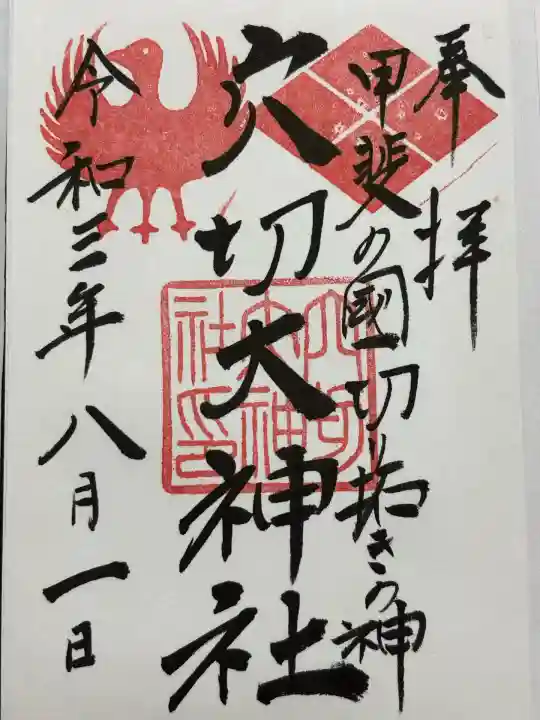 奉拝
甲斐の國切り拓きの神
穴切大神社
穴切
大神
社印
令和三年八月一日